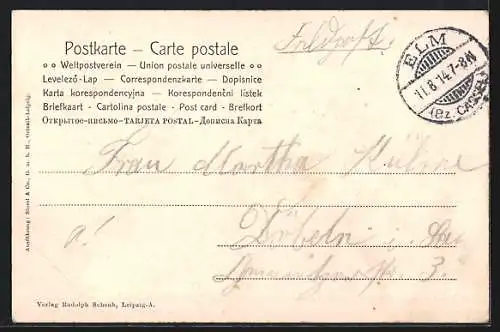 Postkarte — Carte postale
Weltpostverein — Union postale universelle
Levelező-Lap — Correspondenzkarte — Dopisnice
Karta korespondencyjna — Korespondenční lístek
Briefkaart - Cartolina postale - Post card - Brefkort
Открытое-письмо-TARJETA POSTAL-Дописна Карта
Feldpost
ELM
11.8.14.7-8N
(Bz. CASSEL)
Frau Martha Kühne
a!
Döbeln i. Sa.
3.
Verlag Rudolph Schenk, Leipzig-A.